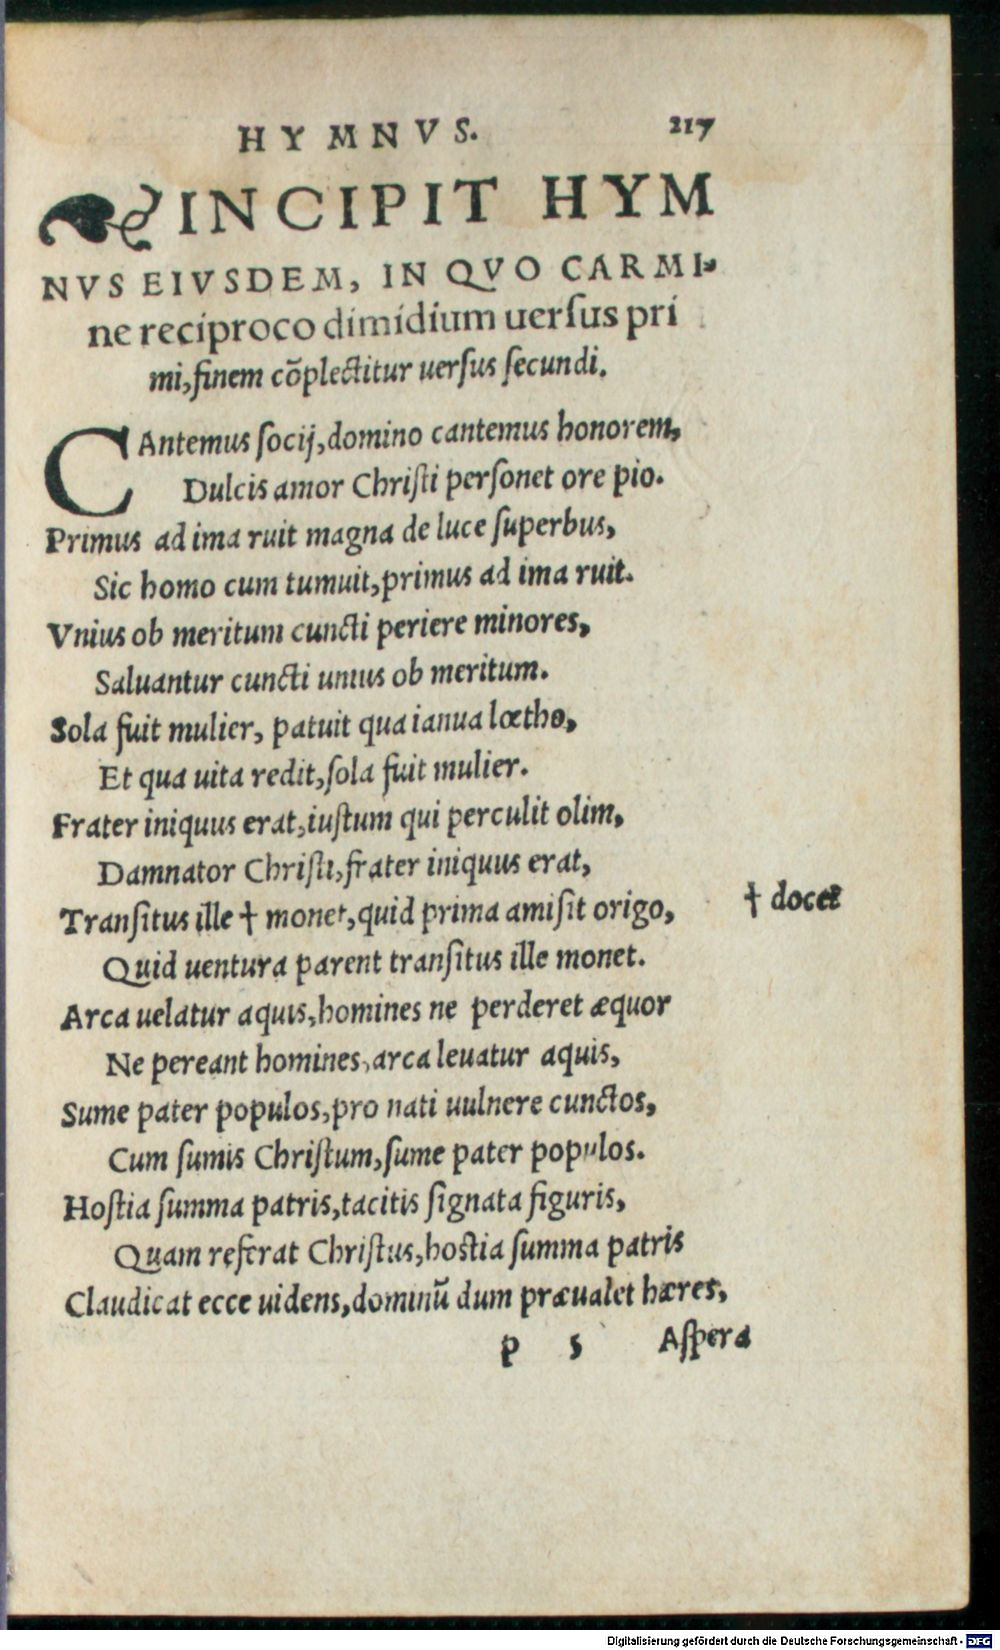 HYMNVS. 217
INCIPIT HYM
NVS EIVSDEM, IN QVO CARMI-
ne reciproco dimidium uerſus pri
mi, finem cõplectitur uerſus ſecundi.
CAntemus ſocij, domino cantemus honorem,
Dulcis amor Chriſti perſonet ore pio.
Primus ad ima ruit magna de luce ſuperbus,
Sic homo cum tumuit, primus ad ima ruit.
Vnius ob meritum cuncti periere minores,
Saluantur cuncti unius ob meritum.
Sola fuit mulier, patuit qua ianua lœtho,
Et qua uita redit, ſola fuit mulier.
Frater iniquus erat, iuſtum qui perculit olim,
Damnator Chriſti, frater iniquus erat,
Tranſitus ille † monet, quid prima amiſit origo, † docet
Quid uentura parent tranſitus ille monet.
Arca uelatur aquis, homines ne perderet æquor
Ne pereant homines, arca leuatur aquis,
Sume pater populos, pro nati uulnere cunctos,
Cum ſumis Chriſtum, ſume pater populos.
Hoſtia ſumma patris, tacitis ſignata figuris,
Quam referat Chriſtus, hoſtia ſumma patris
Claudicat ecce uidens, dominũ dum præualet hæres,
p 5 Aſpera
Digitalisierung gefördert durch die Deutsche Forschungsgemeinschaft - DFG